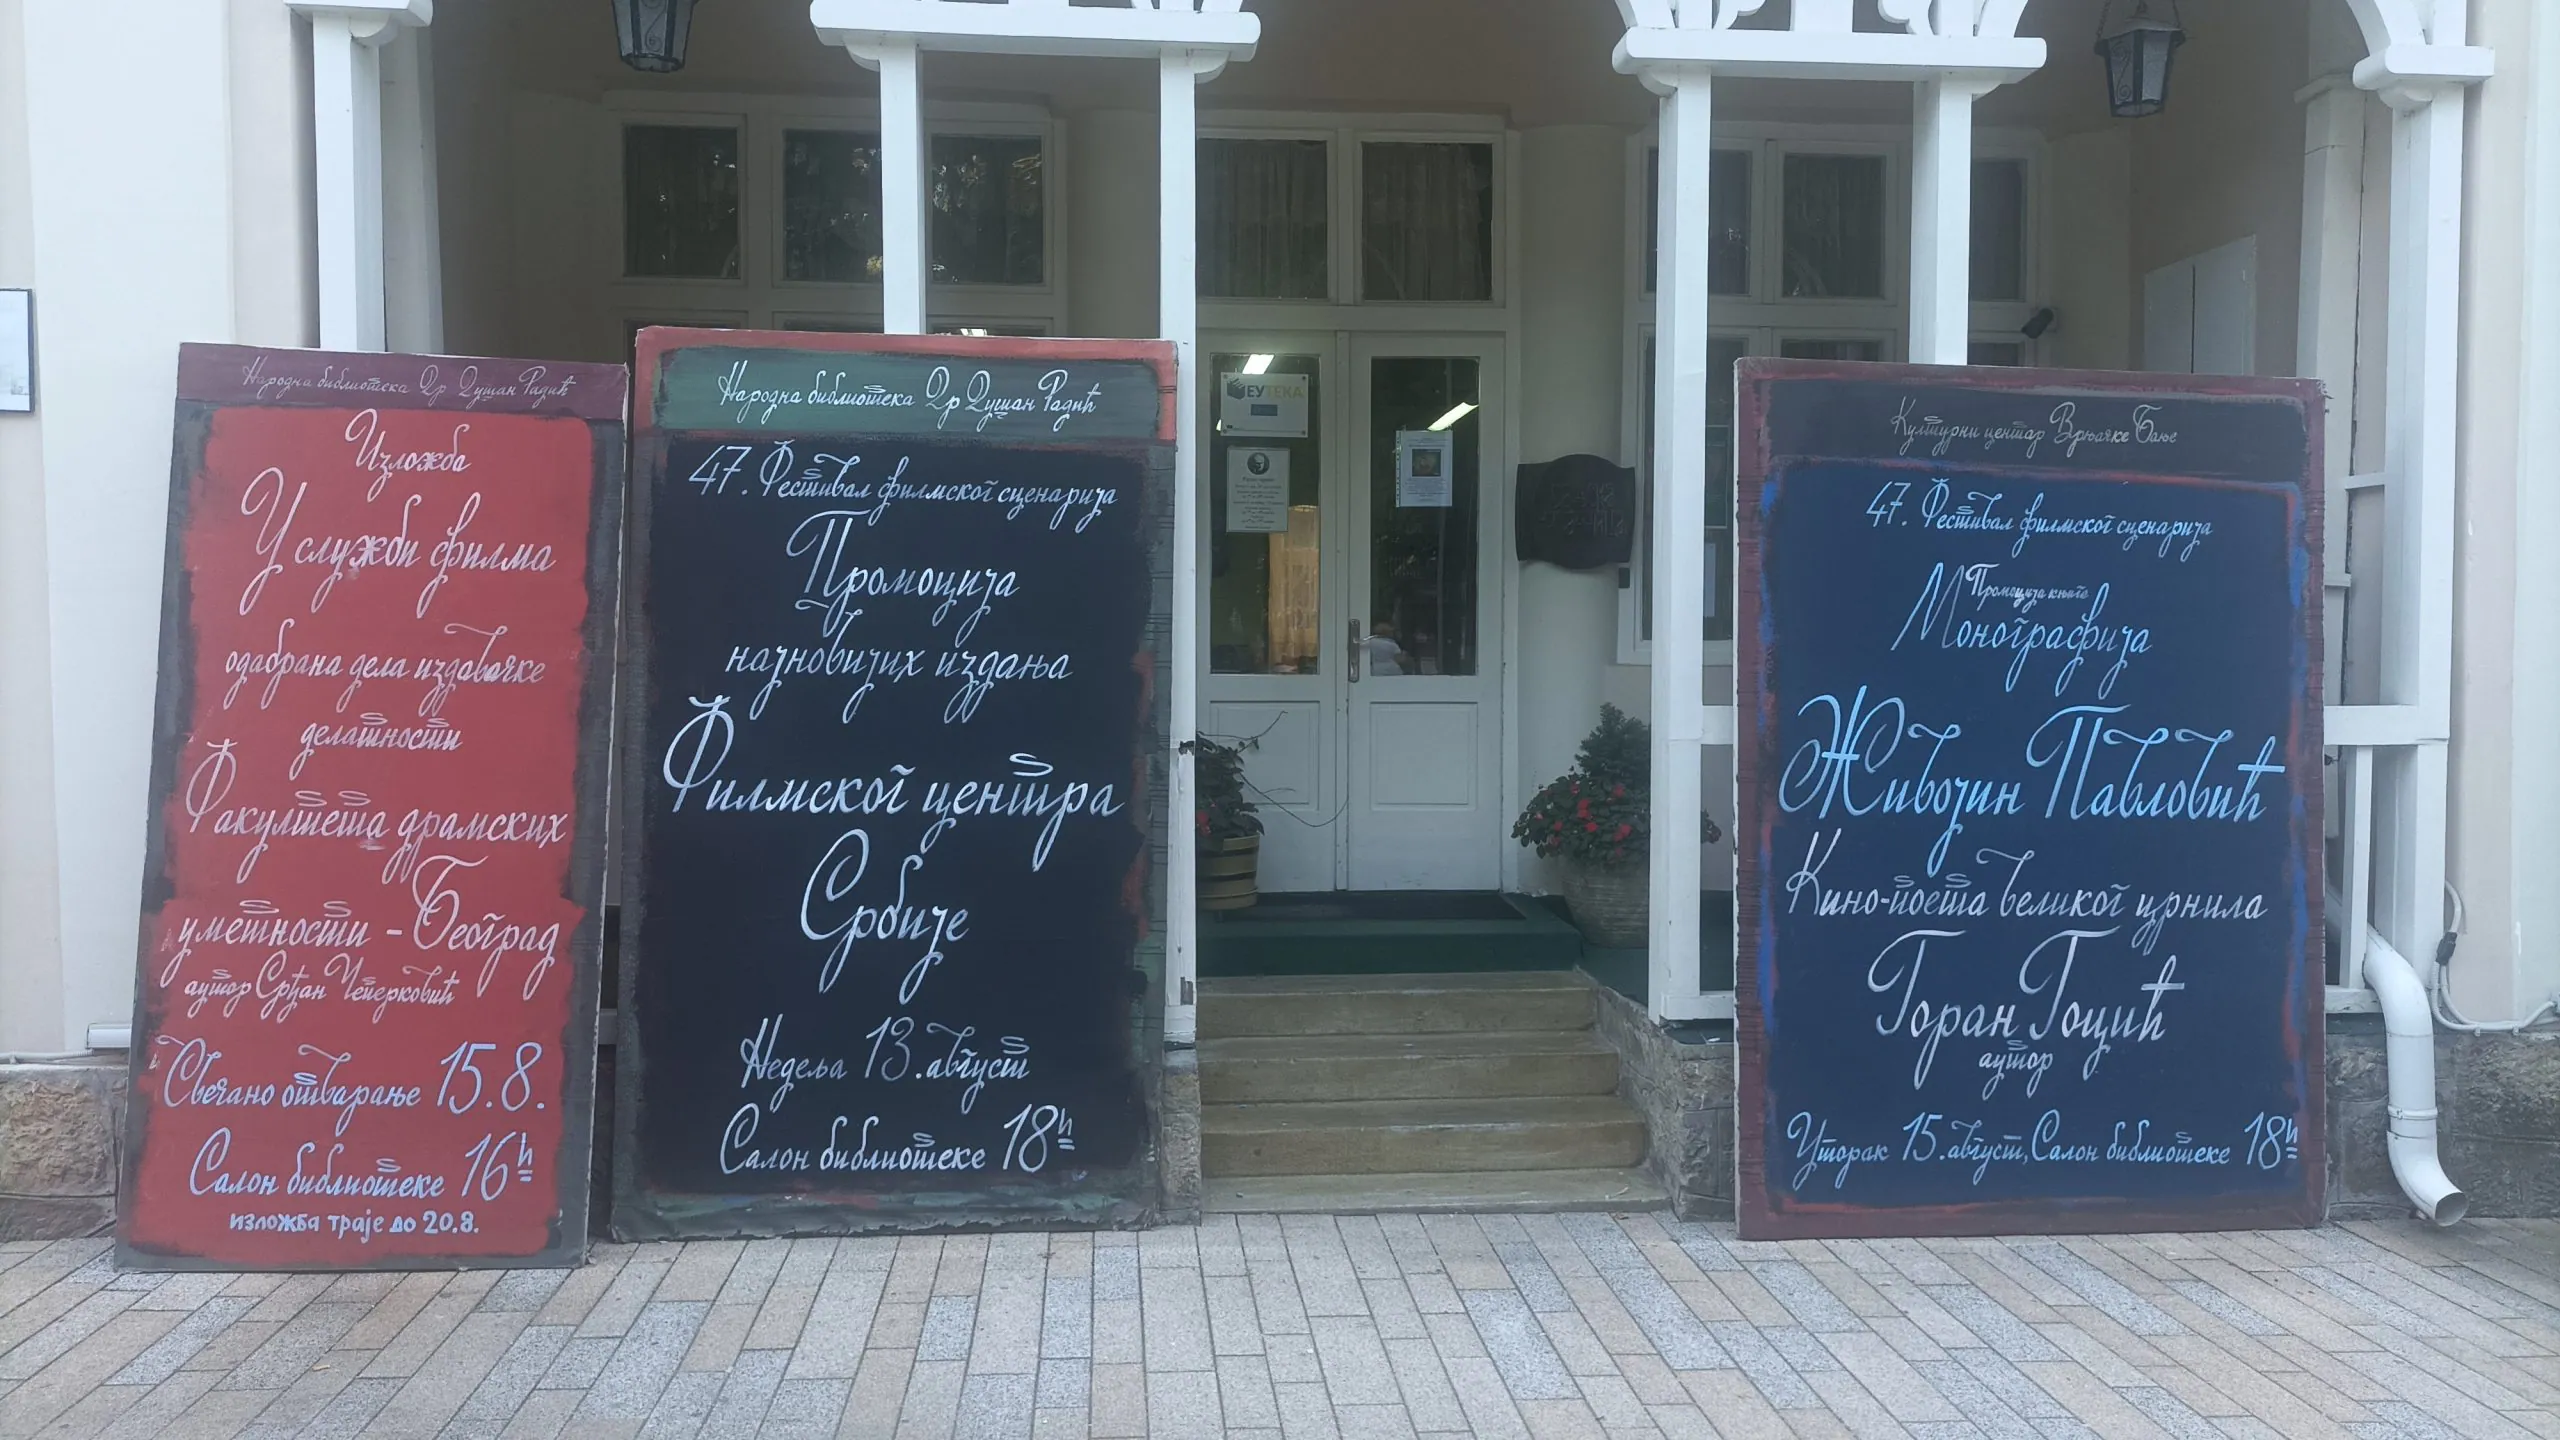 Народна библиотека Др Душан Радић
Изложба
У служби филма
одабрана дела издавачке
делатности
Факултета драмских
уметности - Београд
аутор Срђан Чеперковић
Свечано отварање 15.8.
Салон библиотеке 16h
изложба траје до 20.8.
Народна библиотека Др Душан Радић
47. Фестивал филмског сценарија
Промоција
најновијих издања
Филмског центра
Србије
Недеља 13. август
Салон библиотеке 18h
ЕУТЕКА
Културни центар Врњачке Бање
47. Фестивал филмског сценарија
Промоција књиге
Монографија
Живојин Павловић
Кино-поета великог црнила
Горан Гоцић
аутор
Уторак 15. август, Салон библиотеке 18h